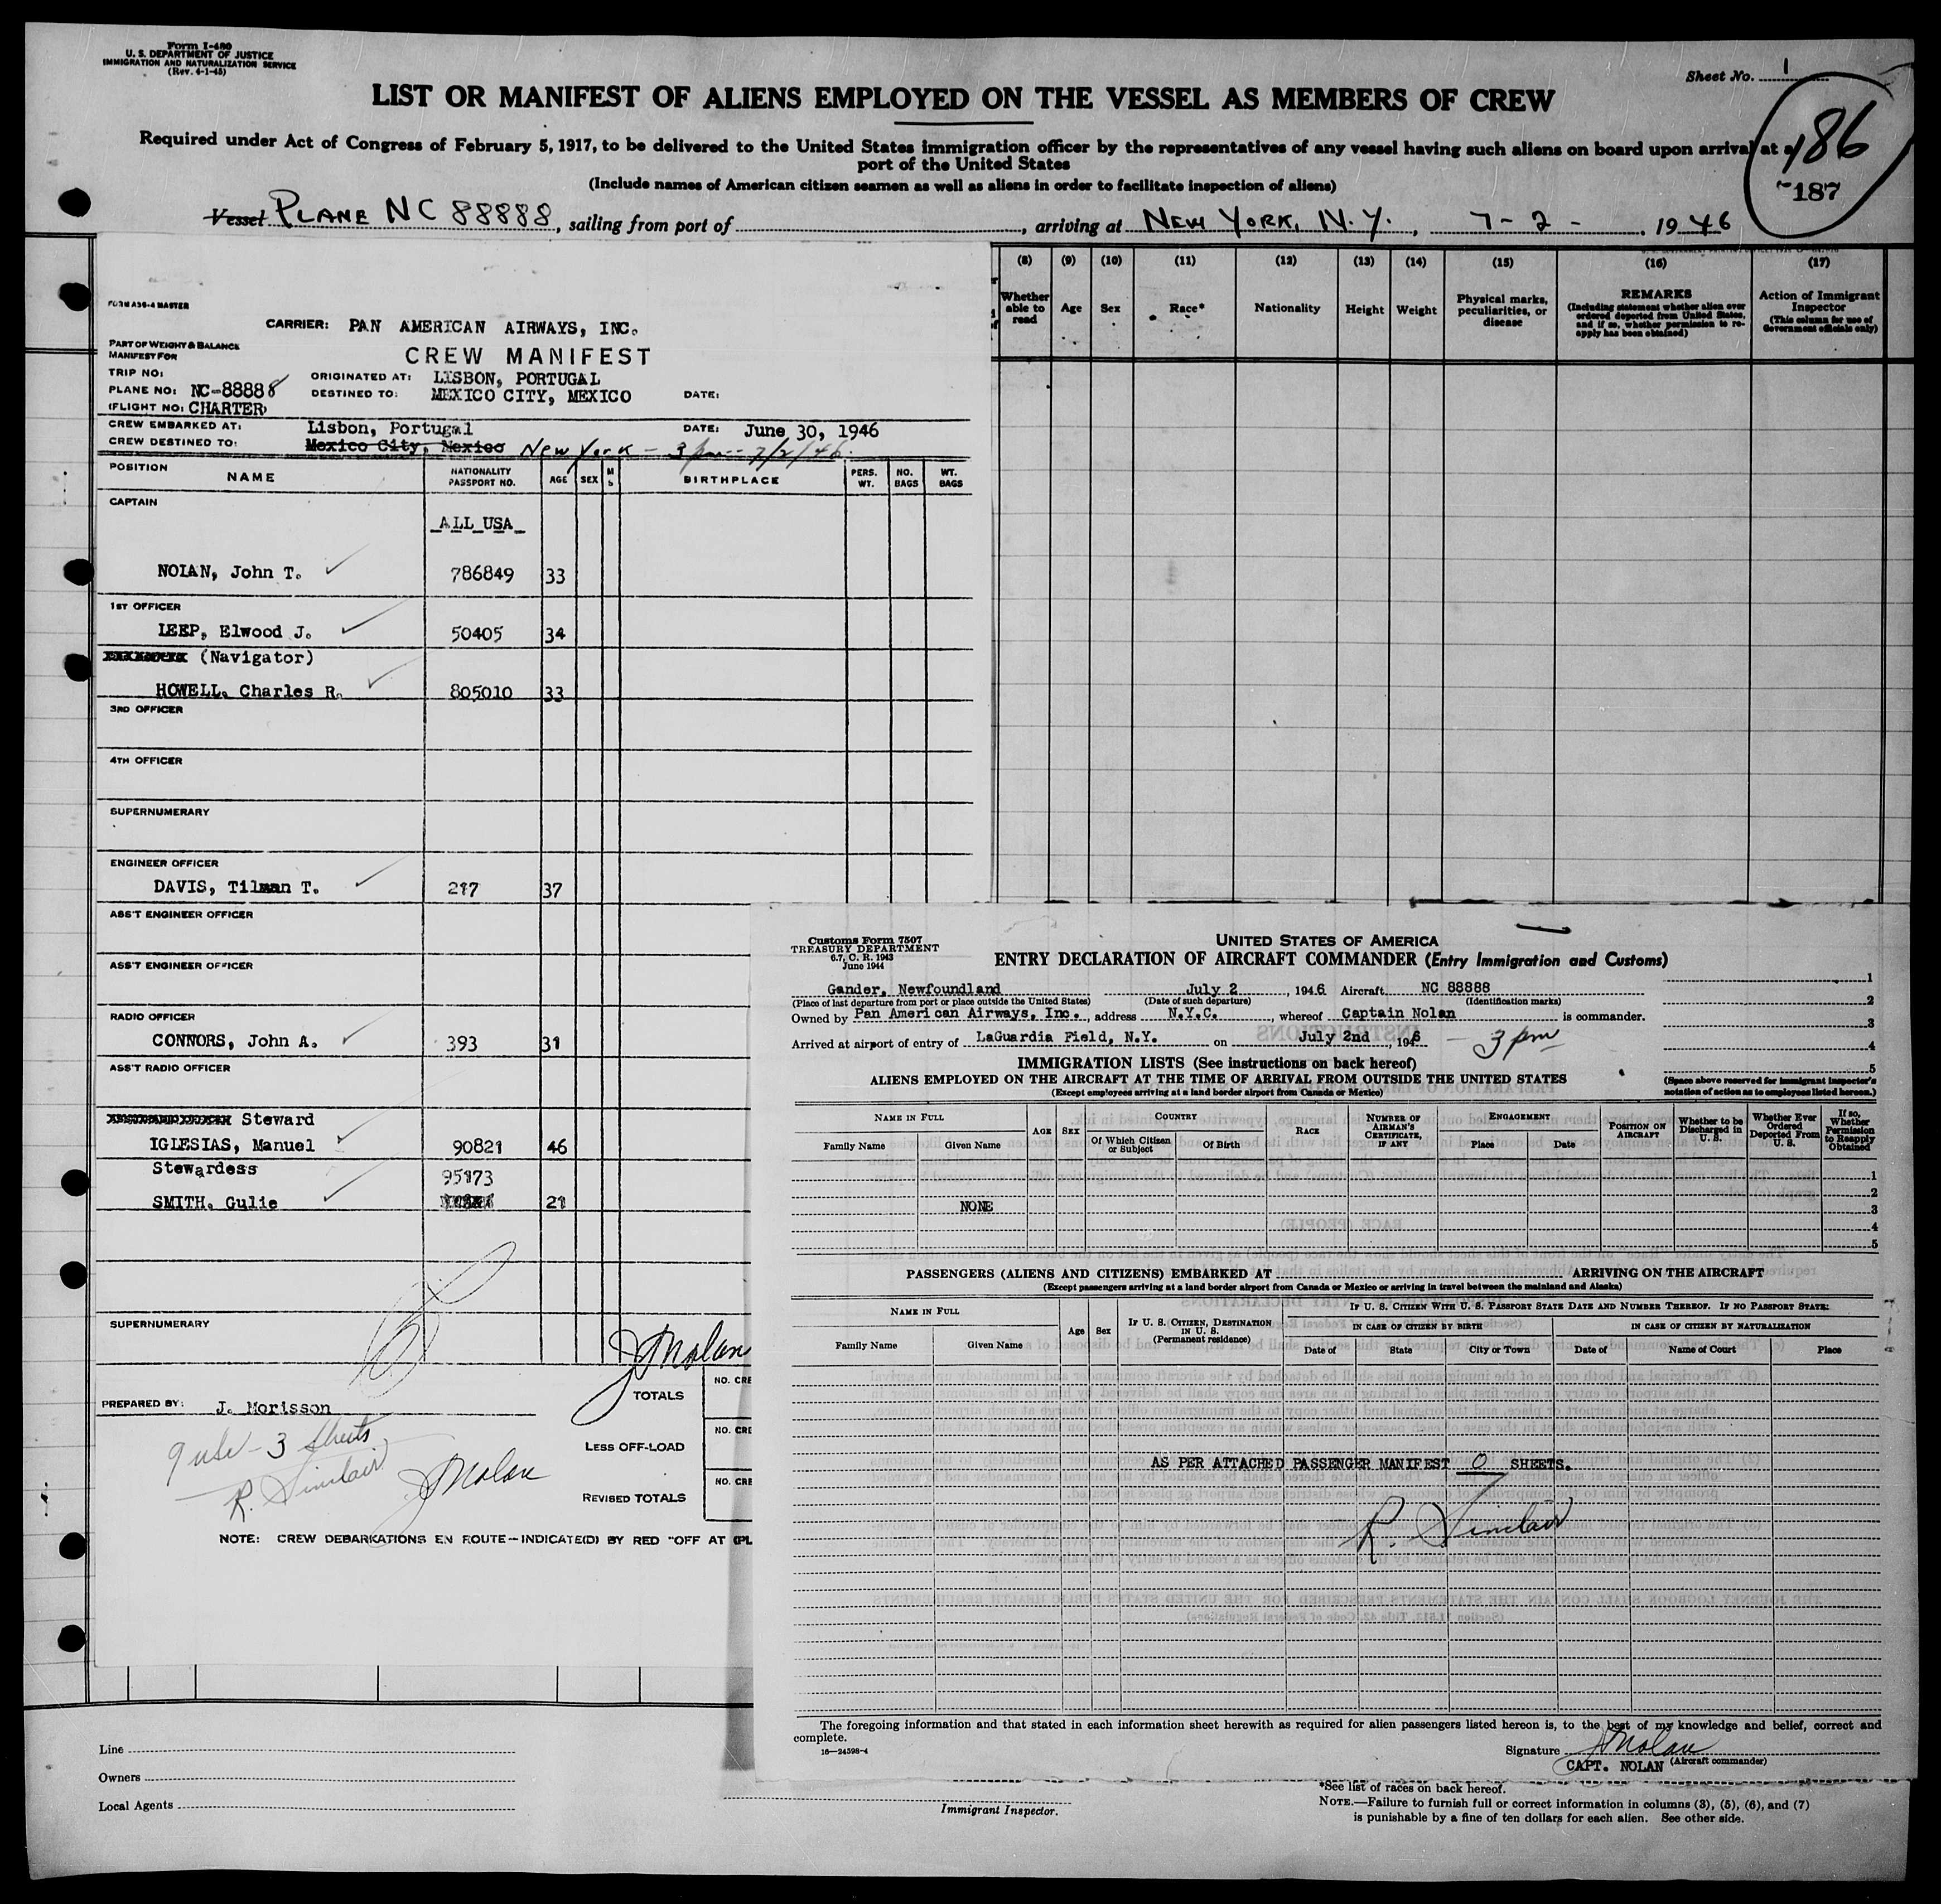 Form I-480
U. S. DEPARTMENT OF JUSTICE
IMMIGRATION AND NATURALIZATION SERVICE
(Rev. 4-1-45)
Sheet No. 1
LIST OR MANIFEST OF ALIENS EMPLOYED ON THE VESSEL AS MEMBERS OF CREW
Required under Act of Congress of February 5, 1917, to be delivered to the United States immigration officer by the representatives of any vessel having such aliens on board upon arrival at a
port of the United States
(Include names of American citizen seamen as well as aliens in order to facilitate inspection of aliens)
186
187
Vessel PLANE NC 88888, sailing from port of , arriving at NEW YORK, N.Y. , 7-2- , 1946
(8) (9) (10) (11) (12) (13) (14) (15) (16) (17)
Whether able to read Age Sex Race* Nationality Height Weight Physical marks, peculiarities, or disease REMARKS (Including statement whether alien ever ordered deported from United States, and if so, whether permission to reapply has been obtained) Action of Immigrant Inspector (This column for use of Government officials only)
FORM A36-4 MASTER
CARRIER: PAN AMERICAN AIRWAYS, INC.
PART OF WEIGHT & BALANCE
MANIFEST FOR
CREW MANIFEST
TRIP NO:
ORIGINATED AT: LISBON, PORTUGAL
PLANE NO: NC-88888
DESTINED TO: MEXICO CITY, MEXICO DATE:
(FLIGHT NO: CHARTER)
CREW EMBARKED AT: Lisbon, Portugal DATE: June 30, 1946
CREW DESTINED TO: Mexico City, Mexico New York - 3 pm - 7/2/46.
POSITION NAME NATIONALITY PASSPORT NO. AGE SEX M S BIRTHPLACE PERS. WT. NO. BAGS WT. BAGS
CAPTAIN
ALL USA
NOLAN, John T. 786849 33
1ST OFFICER
LEEP, Elwood J. 50405 34
(Navigator)
HOWELL, Charles R. 805010 33
3RD OFFICER
4TH OFFICER
SUPERNUMERARY
ENGINEER OFFICER
DAVIS, Tilman T. 217 37
ASS'T ENGINEER OFFICER
ASS'T ENGINEER OFFICER
RADIO OFFICER
CONNORS, John A. 393 31
ASS'T RADIO OFFICER
Steward
IGLESIAS, Manuel 90821 46
Stewardess 95173
SMITH, Gulie 21
SUPERNUMERARY
J Nolan
TOTALS NO. CRE
PREPARED BY: J. Morisson
9 usc - 3 sheets
R. Sinclair
J Nolan
LESS OFF-LOAD NO. CRE
REVISED TOTALS NO. CRE
NOTE: CREW DEBARKATIONS EN ROUTE—INDICATE(D) BY RED "OFF AT (PL
Line
Owners
Local Agents
Customs Form 7507
TREASURY DEPARTMENT
6.7, C. R. 1943
June 1944
UNITED STATES OF AMERICA
ENTRY DECLARATION OF AIRCRAFT COMMANDER (Entry Immigration and Customs)
Gander, Newfoundland July 2 , 1946 Aircraft NC 88888
(Place of last departure from port or place outside the United States) (Date of such departure) (Identification marks)
Owned by Pan American Airways, Inc. , address N.Y.C. , whereof Captain Nolan is commander.
Arrived at airport of entry of LaGuardia Field, N.Y. on July 2nd , 1946 - 3 pm
1
2
3
4
5
IMMIGRATION LISTS (See instructions on back hereof)
ALIENS EMPLOYED ON THE AIRCRAFT AT THE TIME OF ARRIVAL FROM OUTSIDE THE UNITED STATES
(Except employees arriving at a land border airport from Canada or Mexico)
(Space above reserved for immigrant inspector's notation of action as to employees listed hereon.)
NAME IN FULL AGE SEX COUNTRY RACE NUMBER OF AIRMAN'S CERTIFICATE, IF ANY ENGAGEMENT POSITION ON AIRCRAFT Whether to be Discharged in U. S. Whether Ever Ordered Deported From U. S. If so, Whether Permission to Reapply Obtained
Family Name Given Name Of Which Citizen or Subject Of Birth Place Date
1
2
NONE 3
4
5
PASSENGERS (ALIENS AND CITIZENS) EMBARKED AT ARRIVING ON THE AIRCRAFT
(Except passengers arriving at a land border airport from Canada or Mexico or arriving in travel between the mainland and Alaska)
NAME IN FULL Age Sex IF U. S. CITIZEN, DESTINATION IN U. S. (Permanent residence) IF U. S. CITIZEN WITH U. S. PASSPORT STATE DATE AND NUMBER THEREOF. IF NO PASSPORT STATE:
IN CASE OF CITIZEN BY BIRTH IN CASE OF CITIZEN BY NATURALIZATION
Family Name Given Name Date of State City or Town Date of Name of Court Place
AS PER ATTACHED PASSENGER MANIFEST 0 SHEETS.
R. Sinclair
The foregoing information and that stated in each information sheet herewith as required for alien passengers listed hereon is, to the best of my knowledge and belief, correct and
complete.
16—24598-4
Signature J Nolan
CAPT. NOLAN (Aircraft commander)
Immigrant Inspector.
*See list of races on back hereof.
NOTE.—Failure to furnish full or correct information in columns (3), (5), (6), and (7)
is punishable by a fine of ten dollars for each alien. See other side.